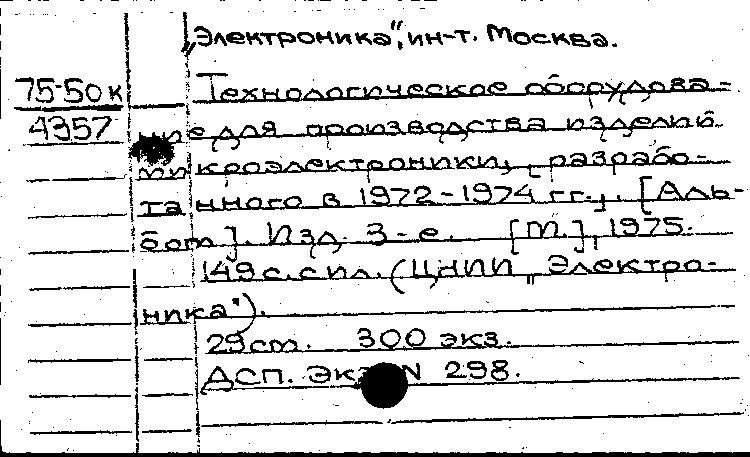 „Электроника“, ин-т. Москва.
75-50к
4357
Технологическое оборудова-
ние для производства изделий
микроэлектроники, разрабо-
танного в 1972-1974 гг., . [Аль-
бом]. Изд. 3-е. [М.], 1975.
149 с. с ил. (ЦНИИ „Электро-
ника“).
29 cm. 300 экз.
ДСП. Экз N 298.